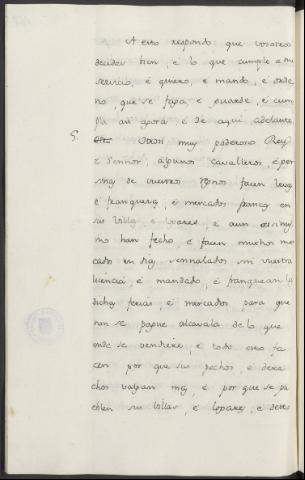 A esto respondo que vosotros
decides bien, é lo que cumple a mi
servicio, é quiero, é mando, é orde
no, que se faga, é guarde, é cum
pla asi agora, é de aqui adelante
5. Otrosi muy poderoso Rey
é Sennor, algunos cavalleros, é per
sonas de vuestros Regnos facen
é franquezas, é mercados francos en
sus Villas, é logares, é aun asi mis
mo han fecho, é facen muchos mer
cados en dias sennalados sin vuestra
licencia é mandado, é franquean las
dichas ferias, é mercados para que
non se pague alcavala de lo que
onde se vendiere, é todo esto fa
cen por que sus pechos, é dere
chos valgan mas, é por que se pue
blen sus Villas, é logares, é dere